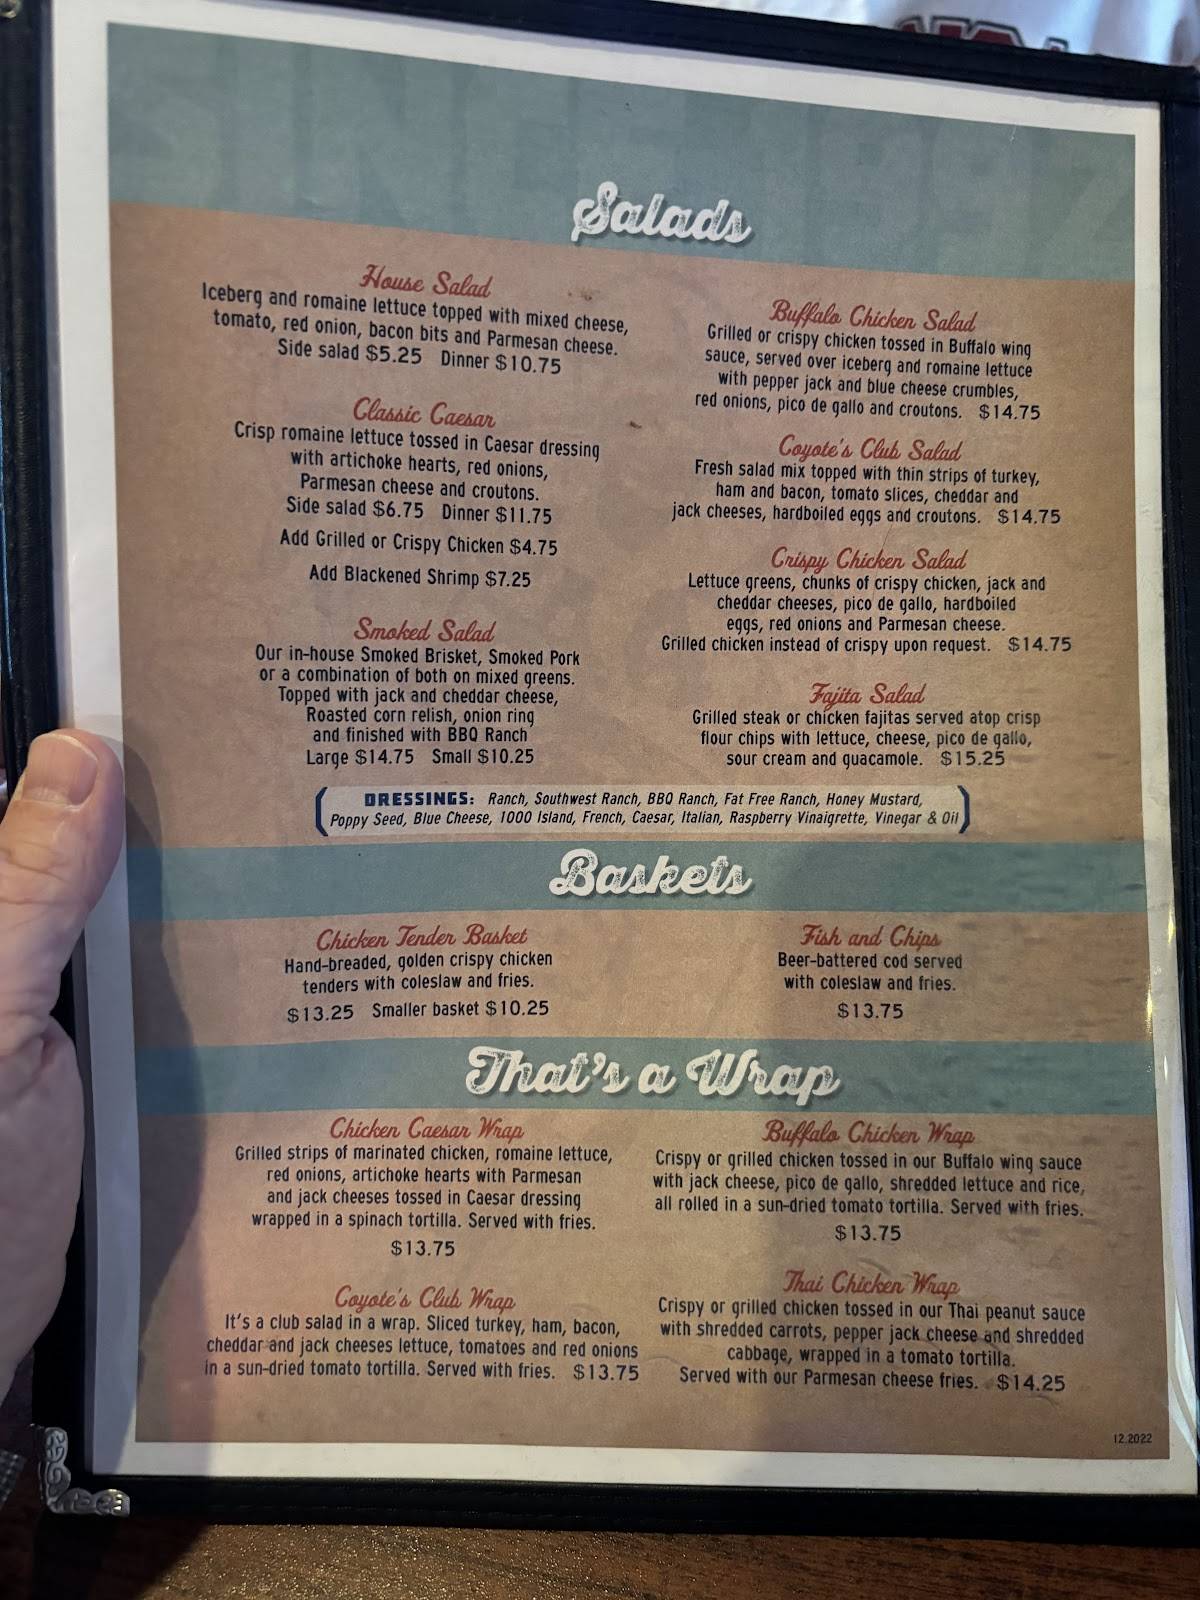 Salads
House Salad
Iceberg and romaine lettuce topped with mixed cheese,
tomato, red onion, bacon bits and Parmesan cheese.
Side salad $5.25 Dinner $10.75
Classic Caesar
Crisp romaine lettuce tossed in Caesar dressing
with artichoke hearts, red onions,
Parmesan cheese and croutons.
Side salad $6.75 Dinner $11.75
Add Grilled or Crispy Chicken $4.75
Add Blackened Shrimp $7.25
Smoked Salad
Our in-house Smoked Brisket, Smoked Pork
or a combination of both on mixed greens.
Topped with jack and cheddar cheese,
Roasted corn relish, onion ring
and finished with BBQ Ranch
Large $14.75 Small $10.25
Buffalo Chicken Salad
Grilled or crispy chicken tossed in Buffalo wing
sauce, served over iceberg and romaine lettuce
with pepper jack and blue cheese crumbles,
red onions, pico de gallo and croutons. $14.75
Coyote's Club Salad
Fresh salad mix topped with thin strips of turkey,
ham and bacon, tomato slices, cheddar and
jack cheeses, hardboiled eggs and croutons. $14.75
Crispy Chicken Salad
Lettuce greens, chunks of crispy chicken, jack and
cheddar cheeses, pico de gallo, hardboiled
eggs, red onions and Parmesan cheese.
Grilled chicken instead of crispy upon request. $14.75
Fajita Salad
Grilled steak or chicken fajitas served atop crisp
flour chips with lettuce, cheese, pico de gallo,
sour cream and guacamole. $15.25
DRESSINGS: Ranch, Southwest Ranch, BBQ Ranch, Fat Free Ranch, Honey Mustard,
Poppy Seed, Blue Cheese, 1000 Island, French, Caesar, Italian, Raspberry Vinaigrette, Vinegar & Oil
Baskets
Chicken Tender Basket
Hand-breaded, golden crispy chicken
tenders with coleslaw and fries.
$13.25 Smaller basket $10.25
Fish and Chips
Beer-battered cod served
with coleslaw and fries.
$13.75
That's a Wrap
Chicken Caesar Wrap
Grilled strips of marinated chicken, romaine lettuce,
red onions, artichoke hearts with Parmesan
and jack cheeses tossed in Caesar dressing
wrapped in a spinach tortilla. Served with fries.
$13.75
Coyote's Club Wrap
It's a club salad in a wrap. Sliced turkey, ham, bacon,
cheddar and jack cheeses lettuce, tomatoes and red onions
in a sun-dried tomato tortilla. Served with fries. $13.75
Buffalo Chicken Wrap
Crispy or grilled chicken tossed in our Buffalo wing sauce
with jack cheese, pico de gallo, shredded lettuce and rice,
all rolled in a sun-dried tomato tortilla. Served with fries.
$13.75
Thai Chicken Wrap
Crispy or grilled chicken tossed in our Thai peanut sauce
with shredded carrots, pepper jack cheese and shredded
cabbage, wrapped in a tomato tortilla.
Served with our Parmesan cheese fries. $14.25
12.2022